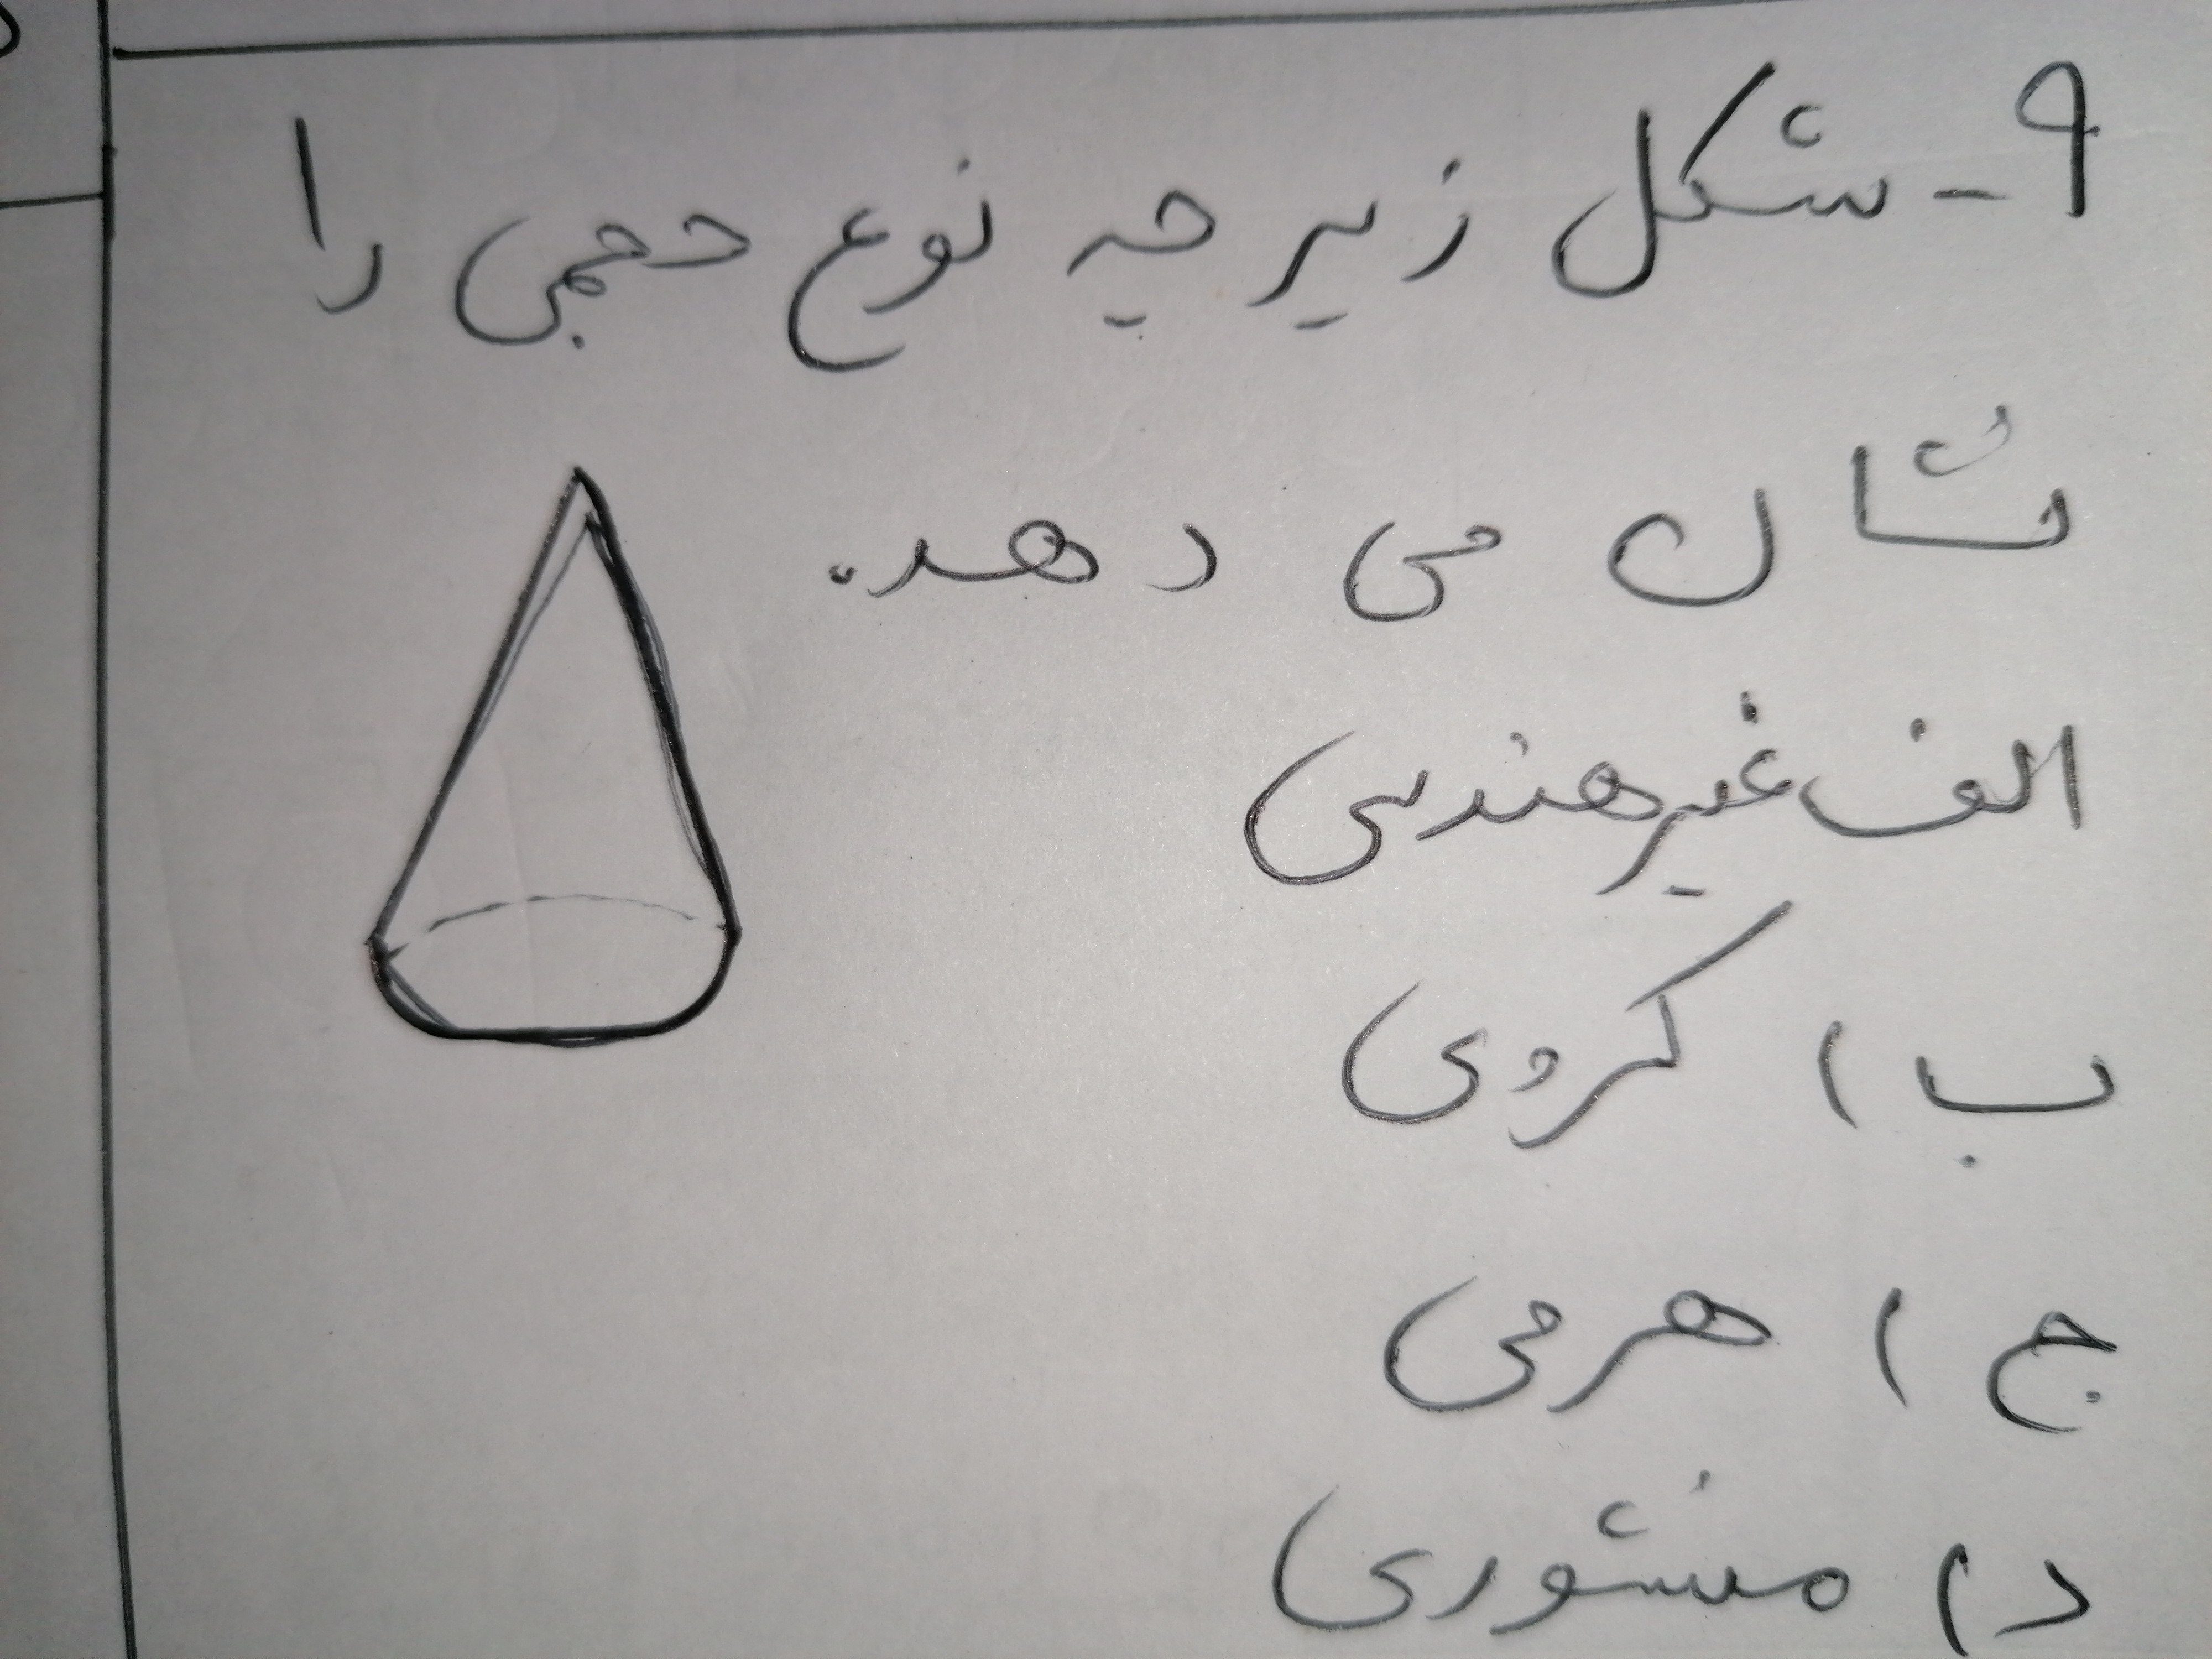 ۹- شکل زیر چه نوع حجمی را
نشان می دهد.
الف غیرهندسی
ب) کروی
ج) هرمی
د) منشوری